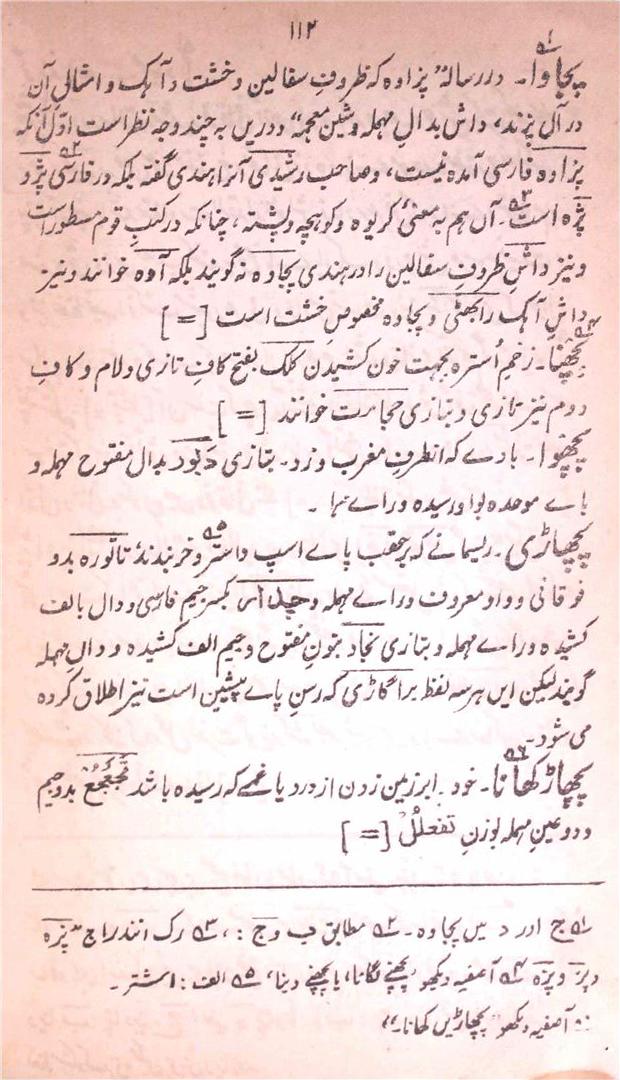 ۱۱۲
پچاوا۔ دررسالہ "پزاوہ کہ ظروفِ سفالین وخشت و آہک و امثالِ آن
در آں پزند، داش بدالِ مہملہ وشین معجمہ" دریں بہ چند وجہ نظراست اوّل آنکہ
پزاوہ فارسی آمدہ نیست، وصاحب رشیدی آنرا ہندی گفتہ بلکہ درفارسی پژو
پژہ است۔ آں ہم بہ معنیٔ کریوہ وکوہچہ وپشتہ، چنانکہ درکتبِ قوم مسطوراست
ونیز داشِ ظروفِ سفالین را درہندی پچاوہ نہ گویند بلکہ آوہ خوانند ونیز
داشِ آہک رابھٹی وپچاوہ مخصوصِ خشت است [=]
پچھنا۔ زخمِ اُسترہ بجہت خون کشیدن کلک بفتح کافِ تازی ولام وکافِ
دوم نیز تازی و بتازی حجامت خوانند [=]
پچھوا۔ بادے کہ ازطرفِ مغرب وزد۔ بتازی دبُود بدال مفتوح مہملہ و
باے موحدہ بواو رسیدہ وراے مہملہ۔
پچھاڑی۔ ریسمانے کہ برعقب پاے اسپ واستر وخر بندند تاتورہ بدو
فوقانی وواو معروف وراے مہملہ وچدار بکسر جیم فارسی ودال بالف
کشیدہ وراے مہملہ و بتازی نجاد بنونِ مفتوح وجیم الف کشیدہ و دالِ مہملہ
گویند لیکن ایں ہرسہ لفظ براگاڑی کہ رسنِ پاے پیشین است نیز اطلاق کردہ
می شود۔
پچھاڑ کھانا۔ خود برزمین زدن از درد یا غمے کہ رسیدہ باشد تجعجع بدوجیم
ودوعینِ مہملہ بوزنِ تفعلل [=]
۱؎ ج اور د میں پچاوہ۔ ۲؎ مطابق ب وج :، ۳؎ رک انندراج "پزہ
وپژ وپژہ ۴؎ آصفیہ دیکھو "پچھنے لگانا، یا پچھنے دینا، ۵؎ الف : اشتر۔
۶؎ آصفیہ دیکھو "پچھاڑیں کھانا۔"